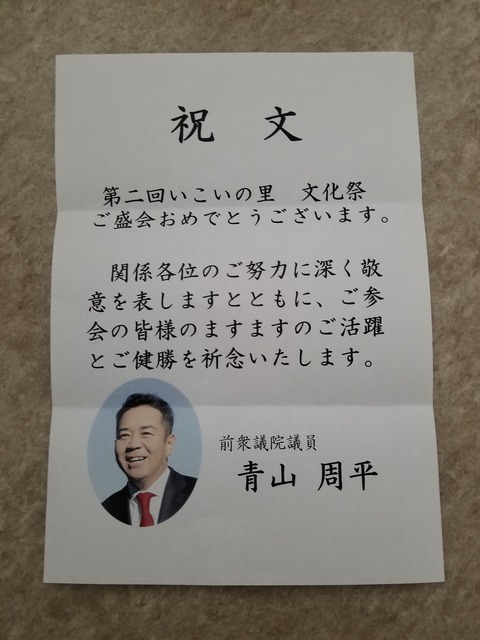 祝　文
第二回いこいの里　文化祭
ご盛会おめでとうございます。
関係各位のご努力に深く敬
意を表しますとともに、ご参
会の皆様のますますのご活躍
とご健勝を祈念いたします。
前衆議院議員
青山 周平